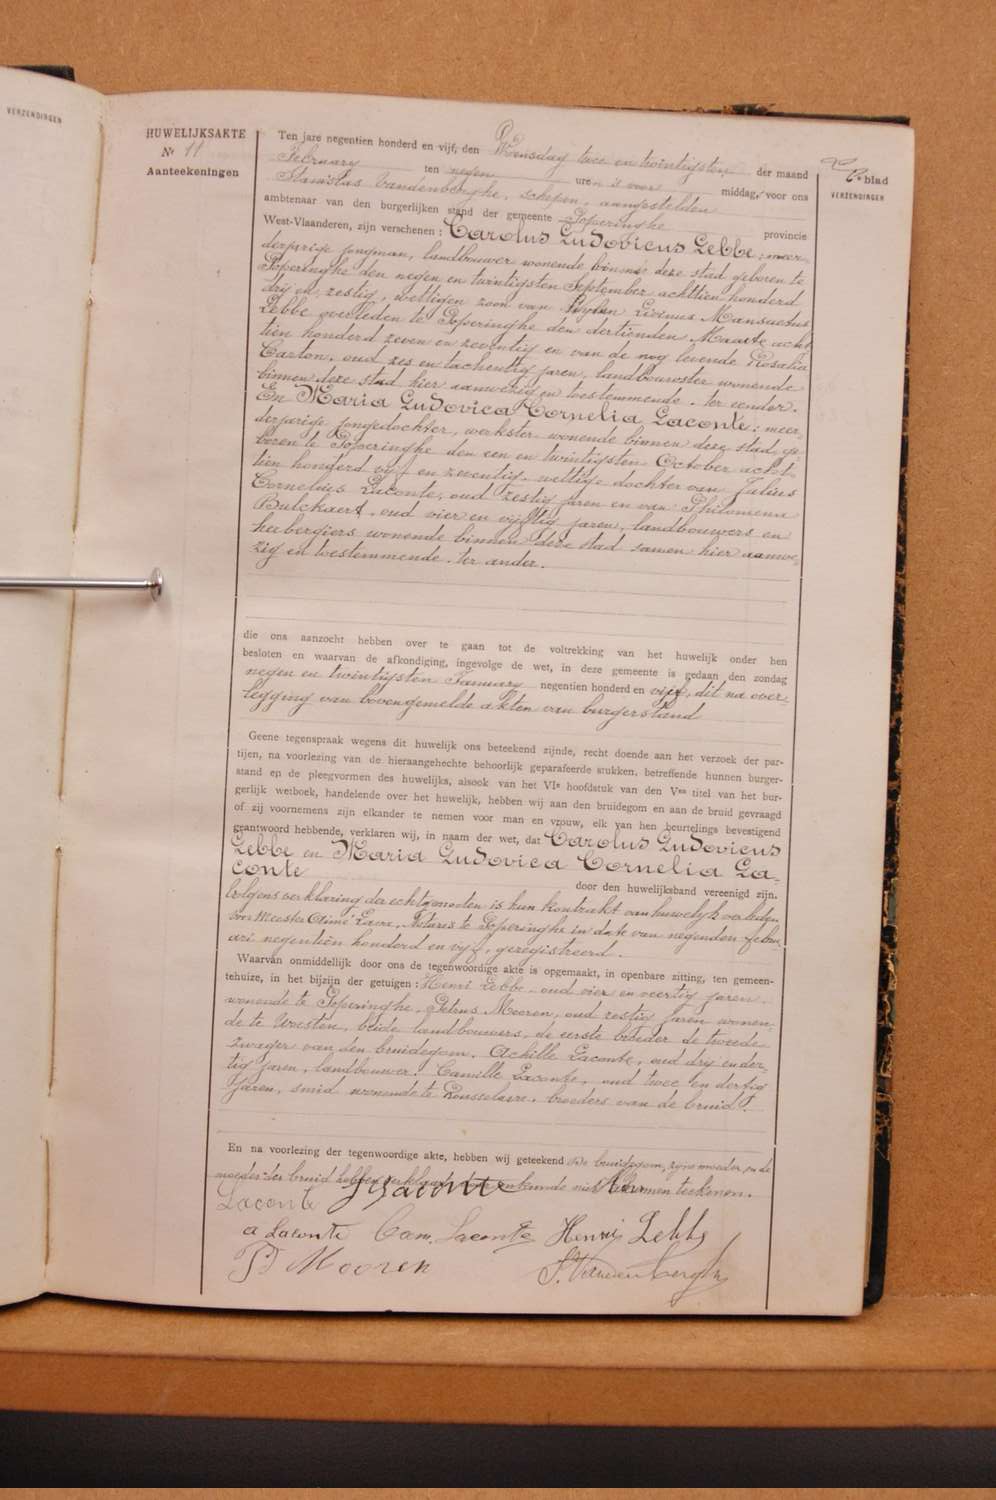 VERZENDINGEN
HUWELIJKSAKTE
Nr 11
Aanteekeningen
blad
VERZENDINGEN
Ten jare negentien honderd en vijf, den Woensdag twee en twintigsten der maand
February ten negen uren 's voor middag, voor ons
Stanislas Vandenberghe, schepen, aangestelden
ambtenaar van den burgerlijken stand der gemeente Poperinghe provincie
West-Vlaanderen, zijn verschenen : Carolus Ludovicus Lebbe, meer-
derjarige jongman, landbouwer wonende binnen deze stad geboren te
Poperinghe den negen en twintigsten September achttien honderd
drij en zestig, wettigen zoon van Livinus Mansuetus
Lebbe overleden te Poperinghe den dertienden Maarte acht
tien honderd zeven en zeventig en van de nog levende Rosalia
Carton, oud zes en tachentig jaren, landbouwster wonende
binnen deze stad hier aanwezig en toestemmende, ter eender.
En Maria Ludovica Cornelia Laconte; meer-
derjarige jongedochter, werkster wonende binnen deze stad ge-
boren te Poperinghe den een en twintigsten October acht-
tien honderd vijf en zeventig, wettige dochter van Julius
Cornelius Laconte, oud zestig jaren en van Philomena
Bulckaert, oud vier en vijftig jaren, landbouwers en
herbergiers wonende binnen deze stad samen hier aanwe-
zig en toestemmende, ter ander.
die ons aanzocht hebben over te gaan tot de voltrekking van het huwelijk onder hen
besloten en waarvan de afkondiging, ingevolge de wet, in deze gemeente is gedaan den zondag
negen en twintigsten January negentien honderd en vijf, dit na over-
legging van bovengemelde akten van burgerstand
Geene tegenspraak wegens dit huwelijk ons beteekend zijnde, recht doende aan het verzoek der par-
tijen, na voorlezing van de hieraangehechte behoorlijk geparafeerde stukken, betreffende hunnen burger-
stand en de pleegvormen des huwelijks, alsook van het VIe hoofdstuk van den Ven titel van het bur-
gerlijk wetboek, handelende over het huwelijk, hebben wij aan den bruidegom en aan de bruid gevraagd
of zij voornemens zijn elkander te nemen voor man en vrouw, elk van hen beurtelings bevestigend
geantwoord hebbende, verklaren wij, in naam der wet, dat Carolus Ludovicus
Lebbe en Maria Ludovica Cornelia La-
conte door den huwelijksband vereenigd zijn.
Volgens verklaring der echtgenoden is hun kontrakt van huwelijk verleden
voor Meester Aimé Lava, Notaris te Poperinghe in date van negenden febru
ari negentien honderd en vijf, geregistreerd.
Waarvan onmiddellijk door ons de tegenwoordige akte is opgemaakt, in openbare zitting, ten gemeen-
tehuize, in het bijzijn der getuigen : Henri Lebbe, oud vier en veertig jaren
wonende te Poperinghe, Petrus Mooren, oud zestig jaren wonen-
de te Woesten, beide landbouwers, de eerste broeder de tweede
zwager van den bruidegom. Achille Laconte, oud drij en der-
tig jaren, landbouwer. Camille Laconte, oud twee en dertig
jaren, smid wonende te Rousselaere, broeders van de bruid.
En na voorlezing der tegenwoordige akte, hebben wij geteekend De bruidegom, zijne moeder, en de
moeder der bruid hebben verklaard kunde niet kunnen teekenen.
Laconte J. Laconte
a Laconte Cam. Laconte Henri Lebbe
P Mooren S. Vandenberghe